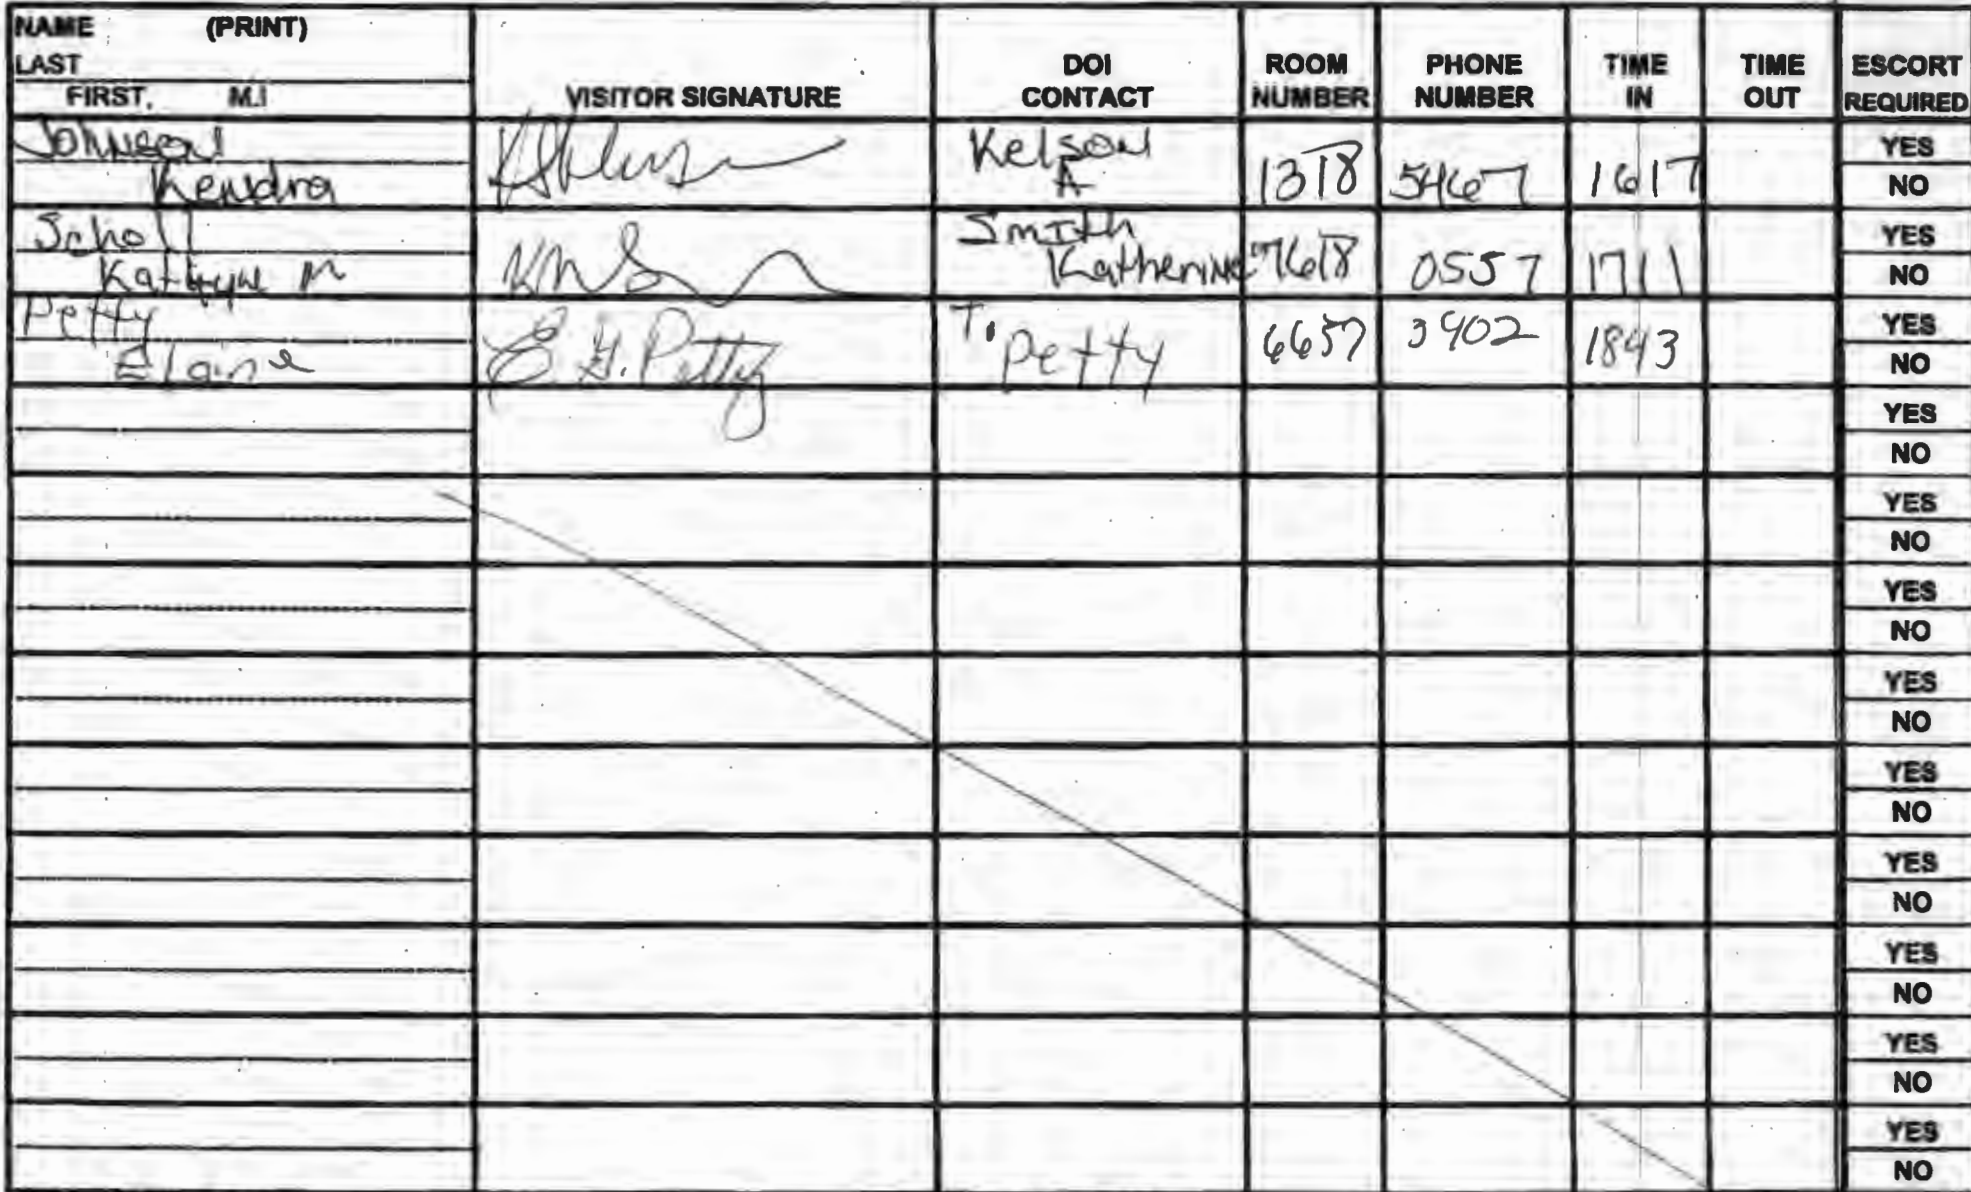 NAME (PRINT)
LAST
FIRST, M.I
VISITOR SIGNATURE
DOI CONTACT
ROOM NUMBER
PHONE NUMBER
TIME IN
TIME OUT
ESCORT REQUIRED
Johnson
Kendra
Kelson
A
1318 5467 1617
YES
NO
Scholl
M
Smith
Katherine 7618 0557 1711
YES
NO
Petty
Elaine
E. G. Petty
T. Petty
6657 3902 1843
YES
NO
YES
NO
YES
NO
YES
NO
YES
NO
YES
NO
YES
NO
YES
NO
YES
NO
YES
NO